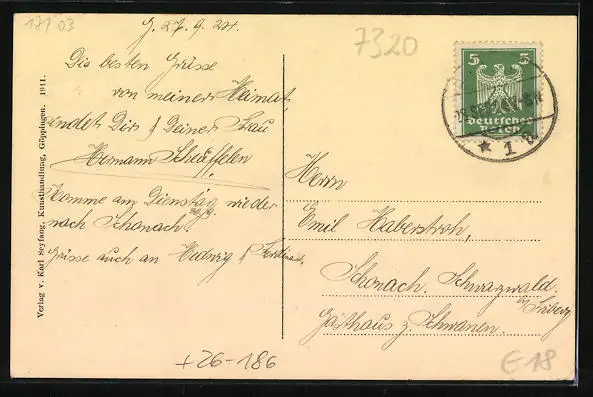 171 03
G. 27. 9. 24.
7320
Die besten Grüsse
von meiner Heimat,
sendet Dir & Deiner Frau
Hermann Scheffelen
Komme am Dienstag wieder
30/9.
nach Schonach.
Grüsse auch an Hedwig &
Verlag v. Karl Seyfang, Kunsthandlung, Göppingen. 1911.
5 5
Deutsches
Reich
★ 1
Herrn
Emil Haberstroh,
Schonach. Schwarzwald.
by Triberg
Gasthaus z. Schwanen.
+26-186
E18